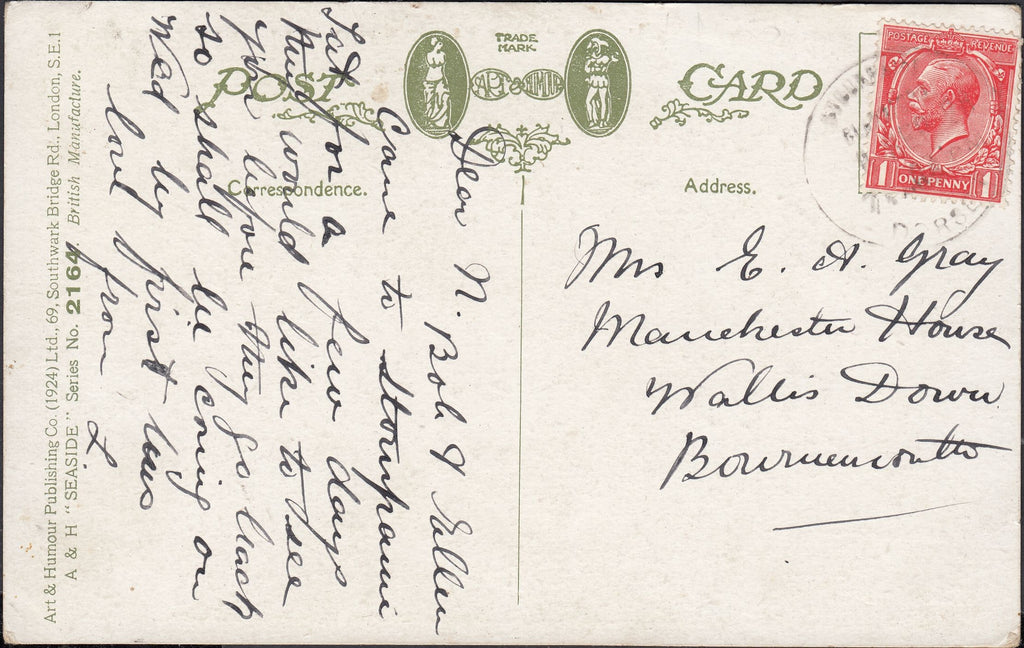 POST CARD
TRADE
MARK
ART & HUMOUR
Correspondence.
Address.
POSTAGE REVENUE
1 ONE PENNY 1
DORSET
Mrs E. A. Gray
Manchester House
Wallis Down
Bournemouth
Dear N. Bob & Ellen
Came to
Sat for a few days
they would like to see
you before they go back
so shall be coming on
Wed by first bus
love from L
Art & Humour Publishing Co. (1924) Ltd., 69, Southwark Bridge Rd., London, S.E.1
A & H "SEASIDE" Series No. 2164. British Manufacture.